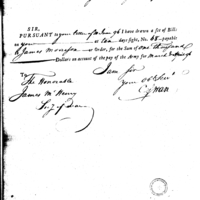 SIR,
PURSUANT to your letter of 10 June 96 I have drawn a set of Bills
on your at ten days sight, No. 68 payable
to James or Order, for the Sum of one thousand
Dollars on account of the pay of the Army for March
I am Sir
your obt Servt
To
The Honorable
James McHenry
Secy of War
C Swan